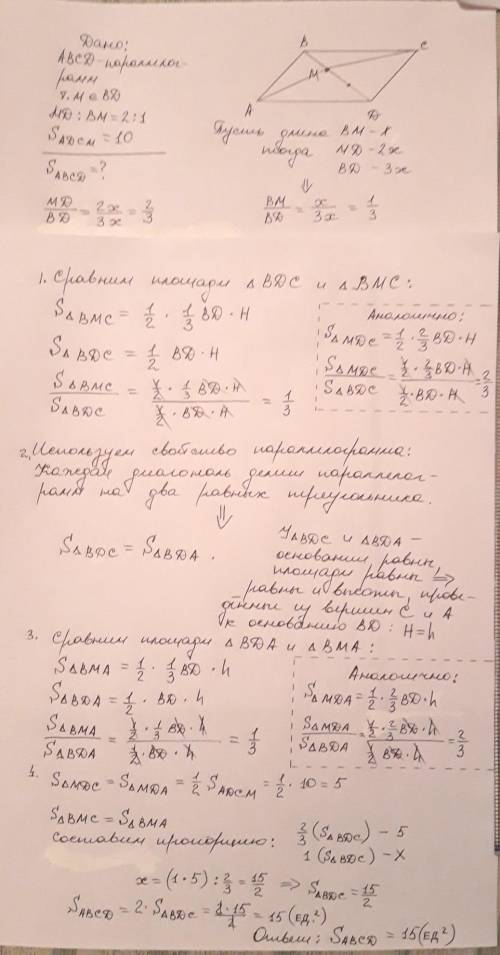 Дано:
ABCD-параллелог-
рамм
т. M ∈ BD
MD : BM = 2 : 1
S ADCM = 10
S ABCD = ?
MD/BD = 2x/3x = 2/3
B C
M
A D
Пусть длина BM - x
тогда MD - 2x
BD - 3x
⇓
BM/BD = x/3x = 1/3
1. Сравним площади △BDC и △BMC:
S△BMC = 1/2 · 1/3 BD · H
S△BDC = 1/2 BD · H
S△BMC/S△BDC = (1/2 · 1/3 BD · H)/(1/2 · BD · H) = 1/3
Аналогично:
S△MDC = 1/2 · 2/3 BD · H
S△MDC/S△BDC = (1/2 · 2/3 BD · H)/(1/2 · BD · H) = 2/3
2. Используем свойство параллелограмма:
Каждая диагональ делит параллелог-
рамм на два равных треугольника.
⇓
S△BDC = S△BDA .
У △BDC и △BDA -
основании равны,
площади равны ⇒
равны и высоты, прове-
дённые из вершин C и A
к основанию BD : H = h
3. Сравним площади △BDA и △BMA :
S△BMA = 1/2 · 1/3 BD · h
S△BDA = 1/2 · BD · h
S△BMA/S△BDA = (1/2 · 1/3 BD · h)/(1/2 · BD · h) = 1/3
Аналогично:
S△MDA = 1/2 · 2/3 BD · h
S△MDA/S△BDA = (1/2 · 2/3 BD · h)/(1/2 BD · h) = 2/3
4. S△MDC = S△MDA = 1/2 S ADCM = 1/2 · 10 = 5
S△BMC = S△BMA
Составим пропорцию: 2/3 (S△BDC) - 5
1 (S△BDC) - X
x = (1 · 5) : 2/3 = 15/2 ⇒ S△BDC = 15/2
S ABCD = 2 · S△BDC = 2·15/2 = 15 (ед.²)
Ответ: S ABCD = 15 (ед²)